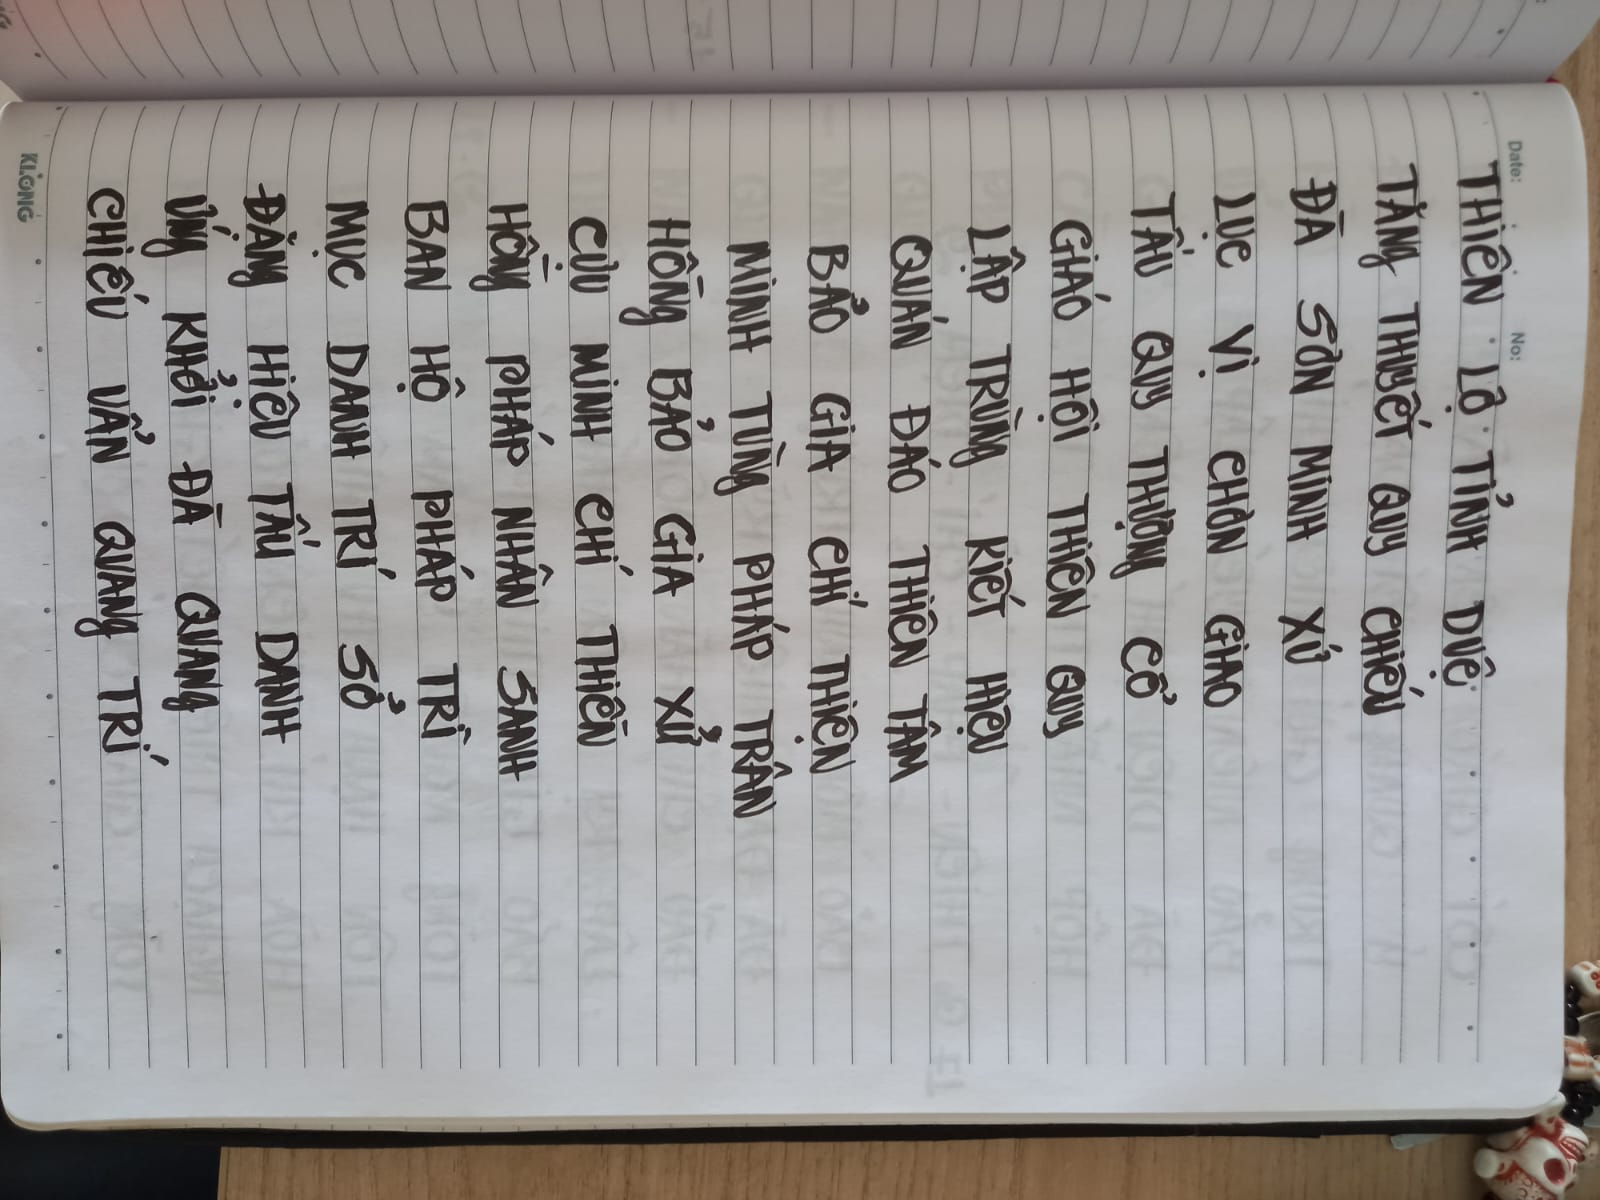 Date: No:
THIÊN LỘ TỈNH DUỆ
TĂNG THUYẾT QUY CHIẾU
ĐÀ SƠN MINH XỨ
LỤC VỊ CHƠN GIAO
TẤU QUY THƯỢNG CỔ
GIÁO HỘI THIÊN QUY
LẬP TRÙNG KIẾT HIỆU
QUÁN ĐÁO THIÊN TÂM
BẢO GIA CHÍ THIỆN
MINH TÙNG PHÁP TRÂN
HỒNG BẢO GIA XỬ
CỰU MINH CHÍ THIÊN
HỒNG PHÁP NHÂN SANH
BAN HỘ PHÁP TRÌ
MỤC DANH TRÍ SỞ
ĐẶNG HIỆU TẤU DANH
ỨNG KHỞI ĐÀ QUANG
CHIẾU VẨN QUANG TRÍ
KLONG